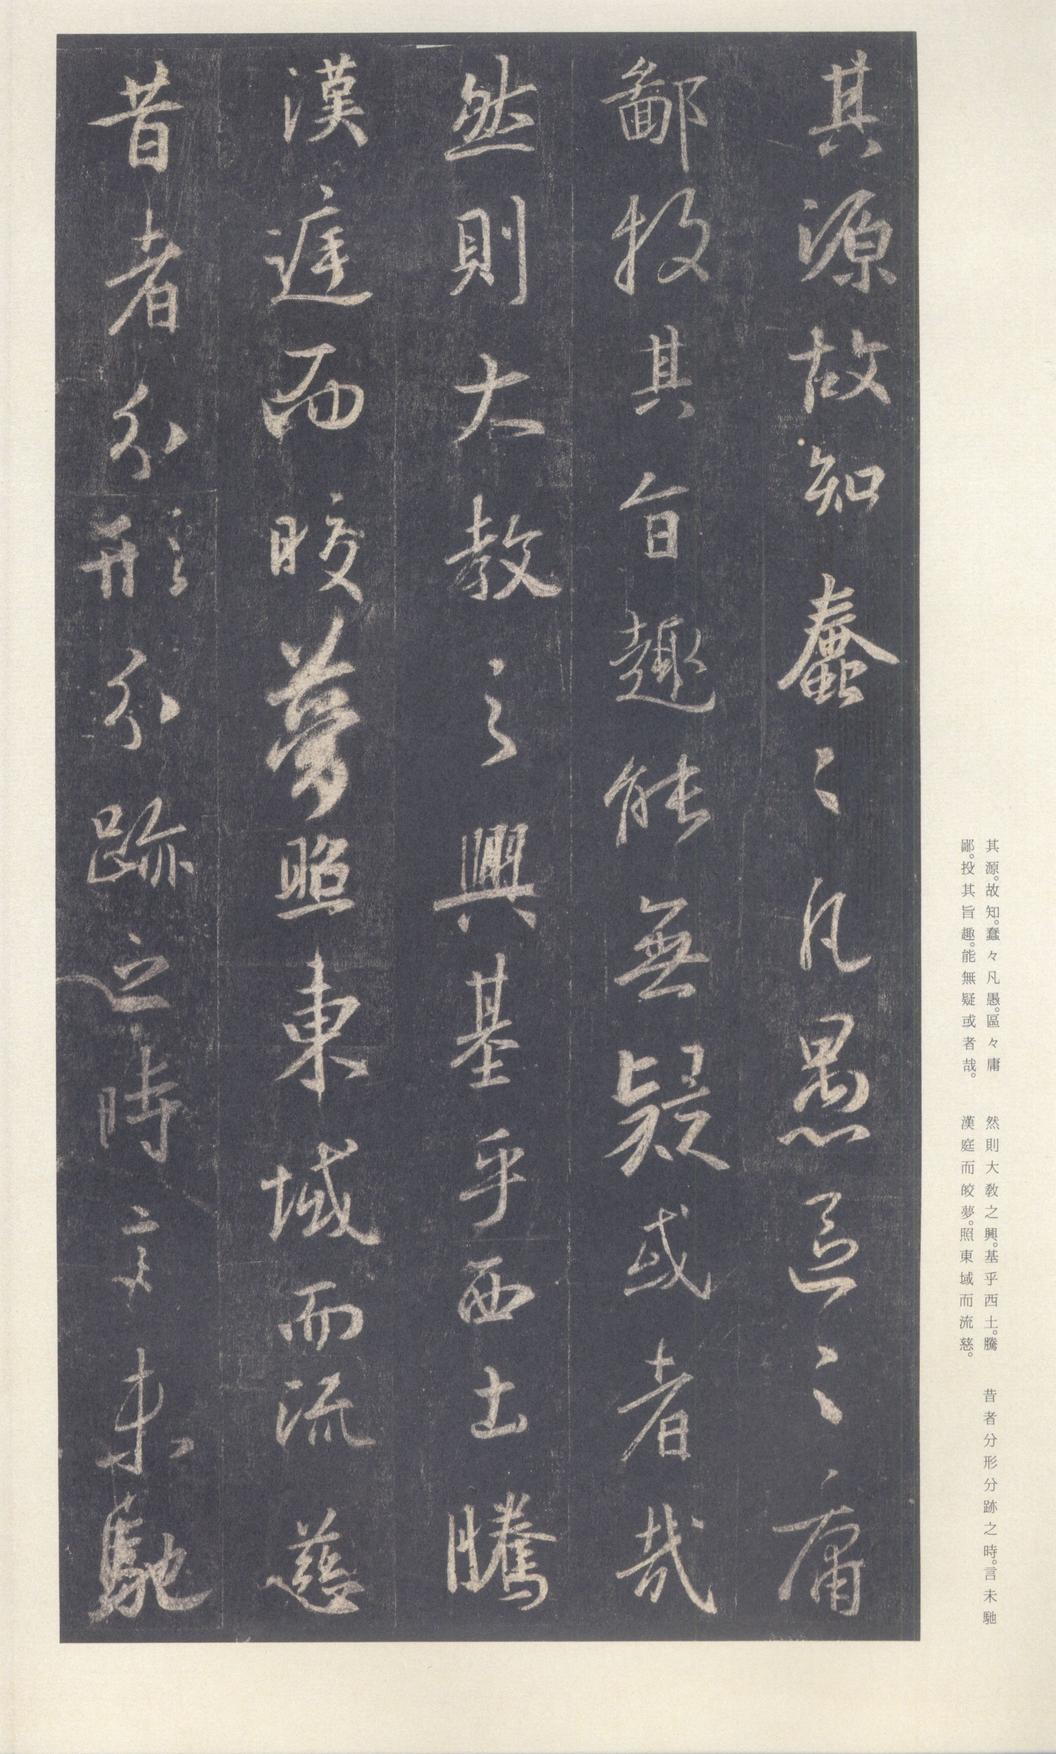 其源故知蠢々凡愚區々庸
鄙投其旨趣能無疑或者哉
然則大教之興基乎西土騰
漢庭而皎夢照東域而流慈
昔者分形分跡之時言未馳
其源。故知。蠢々凡愚。區々庸
鄙。投其旨趣。能無疑或者哉。
然則大教之興。基乎西土。騰
漢庭而皎夢。照東域而流慈。
昔者分形分跡之時。言未馳